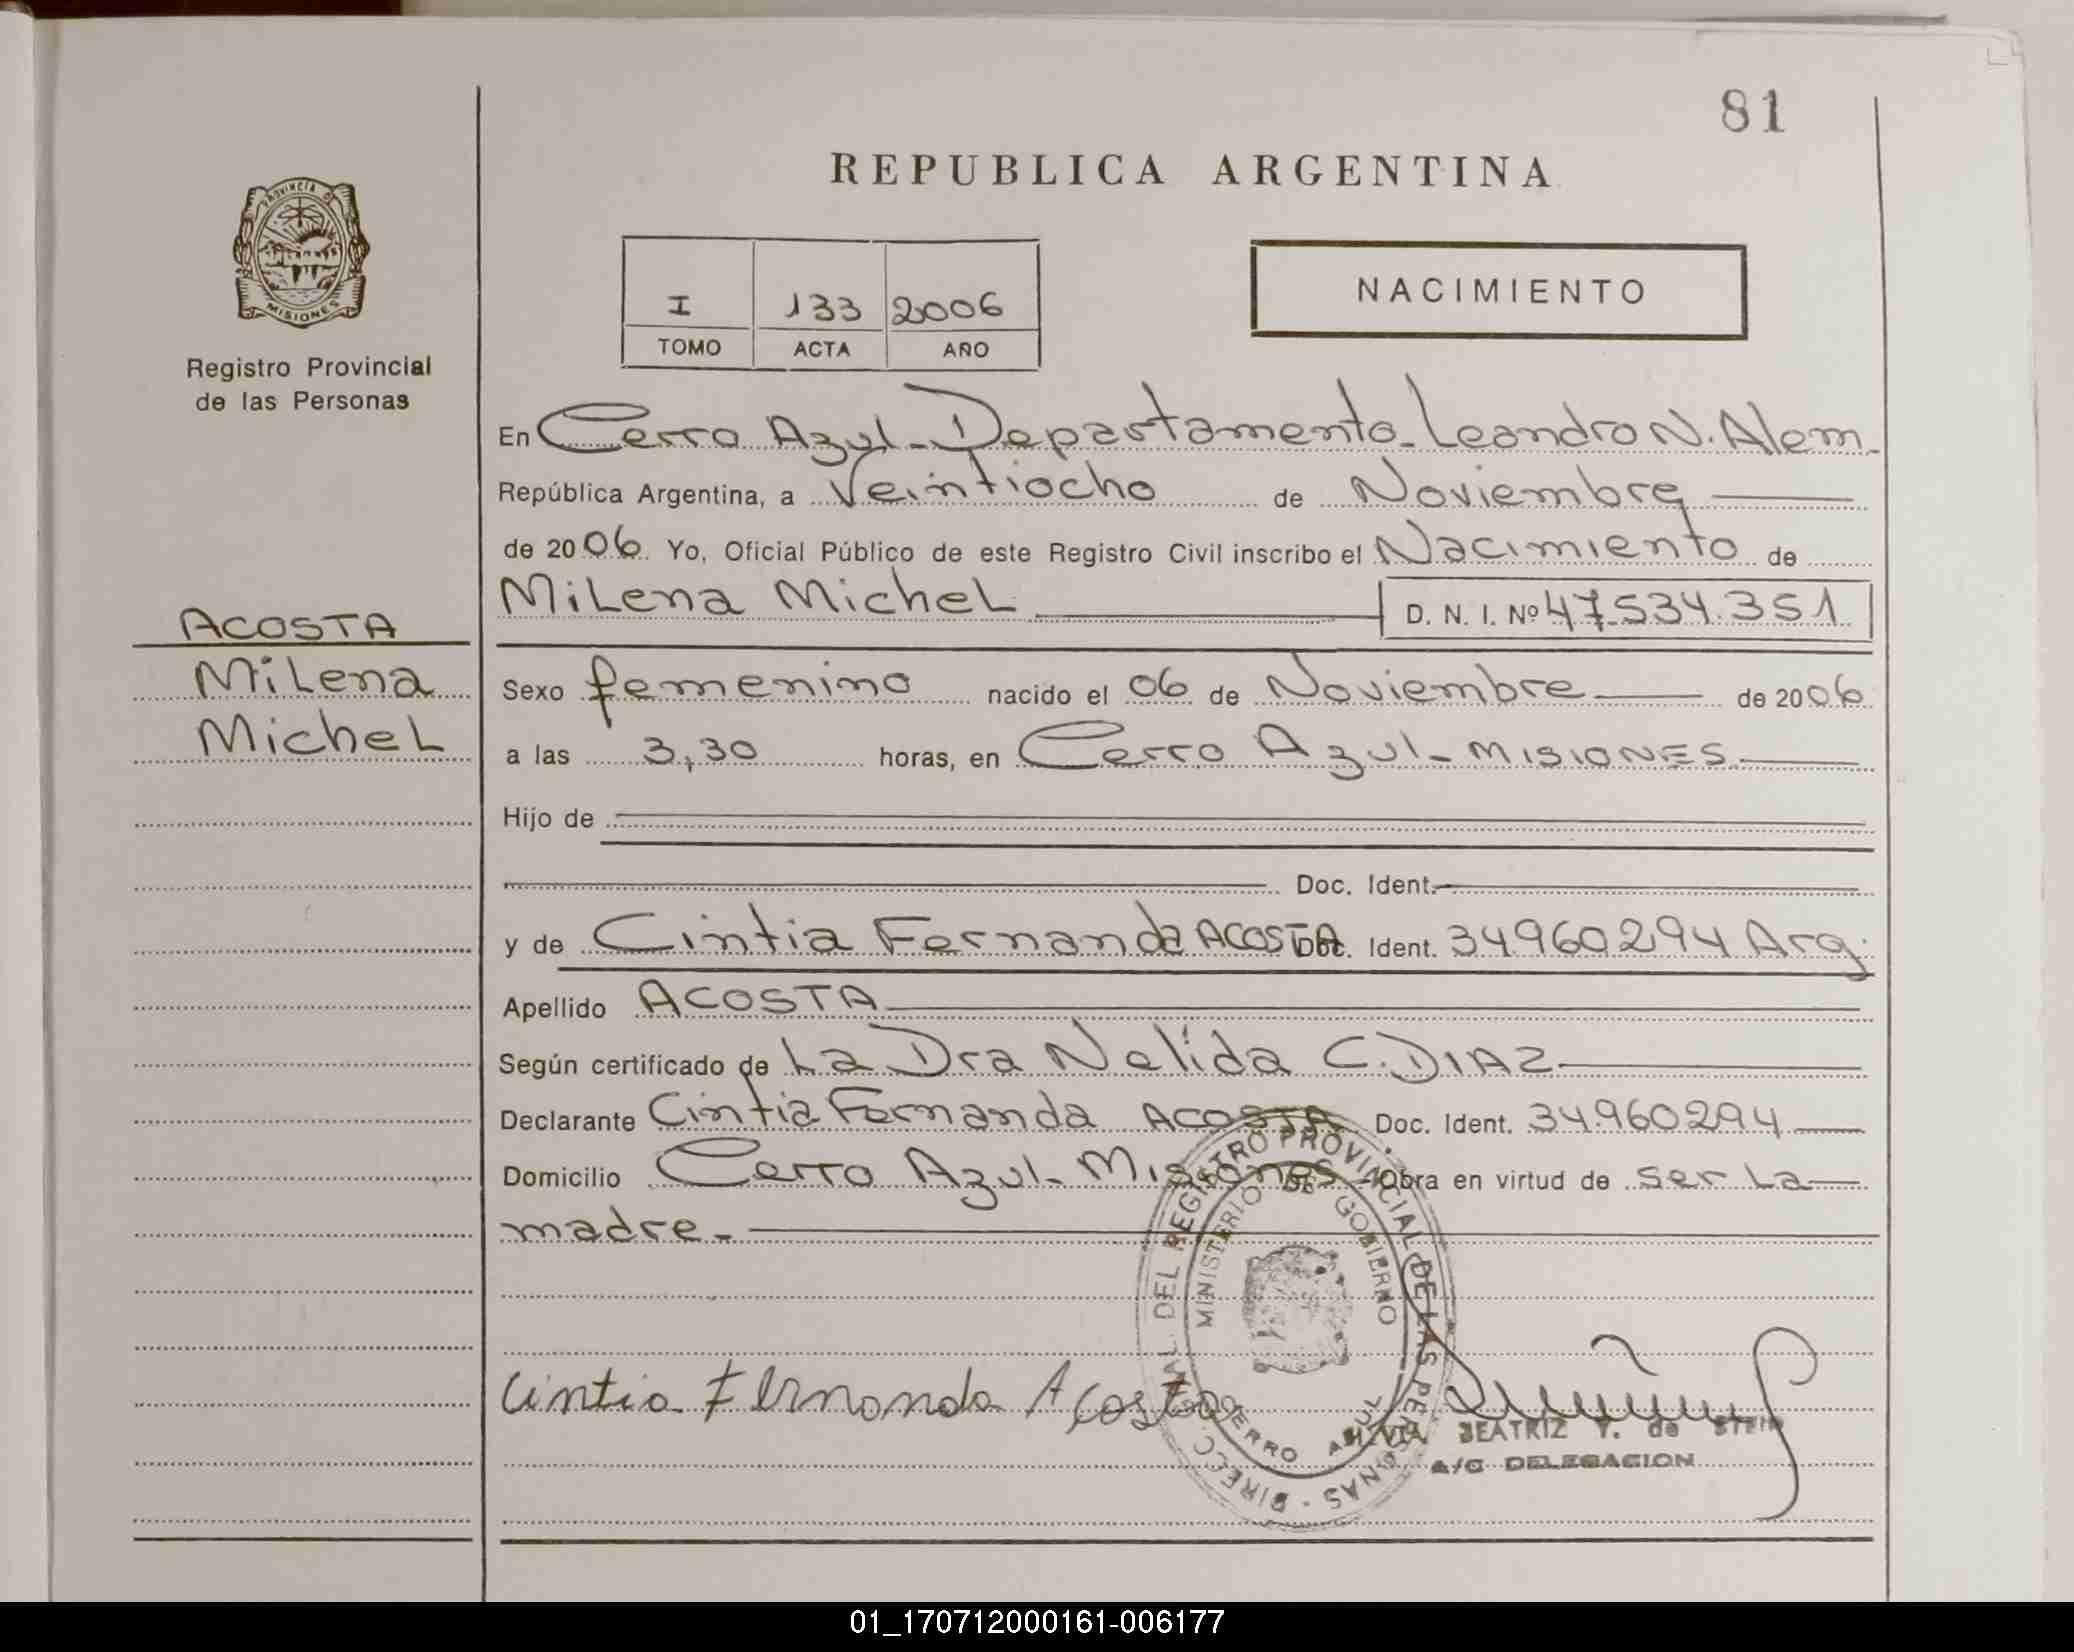 81
REPUBLICA ARGENTINA
PROVINCIA DE
MISIONES
Registro Provincial
de las Personas
I 133 2006
TOMO ACTA AÑO
NACIMIENTO
En Cerro Azul - Departamento - Leandro N. Alem -
República Argentina, a Veintiocho de Noviembre
de 2006. Yo, Oficial Público de este Registro Civil inscribo el Nacimiento de
Milena Michel D. N. I. Nº 47.534.351
ACOSTA
Milena
Michel
Sexo femenino nacido el 06 de Noviembre de 2006
a las 3,30 horas, en Cerro Azul - MISIONES
Hijo de
Doc. Ident.
y de Cintia Fernanda ACOSTA Doc. Ident. 34.960.294 Arg.
Apellido ACOSTA
Según certificado de La Dra Nelida C. DIAZ
Declarante Cintia Fernanda ACOSTA Doc. Ident. 34.960.294
Domicilio Cerro Azul - Misiones - Obra en virtud de ser la
madre -
DIRECC. GRAL. DEL REGISTRO PROVINCIAL DE LAS PERSONAS
MINISTERIO DE GOBIERNO
CERRO AZUL
Cintia Fernanda Acosta
BEATRIZ Y. de STEIN
A/C DELEGACION
01_170712000161-006177